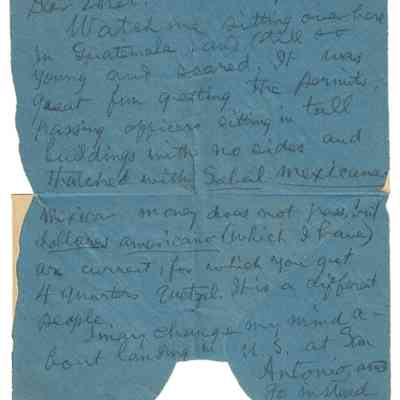 Dear
Watch me sitting over here
in Guatemala, and still so
young and scared. It was
great fun greeting the permits,
passing officers sitting in tall
buildings with no sides and
thatched with Sabal mexicana
Mexican money does not pass, but
dollares americano (which I have)
are current, for which you get
4 quarters Quetzal. It is a different
people.
I may change my mind a-
bout landing in U.S. at San
Antonio, and
go instead